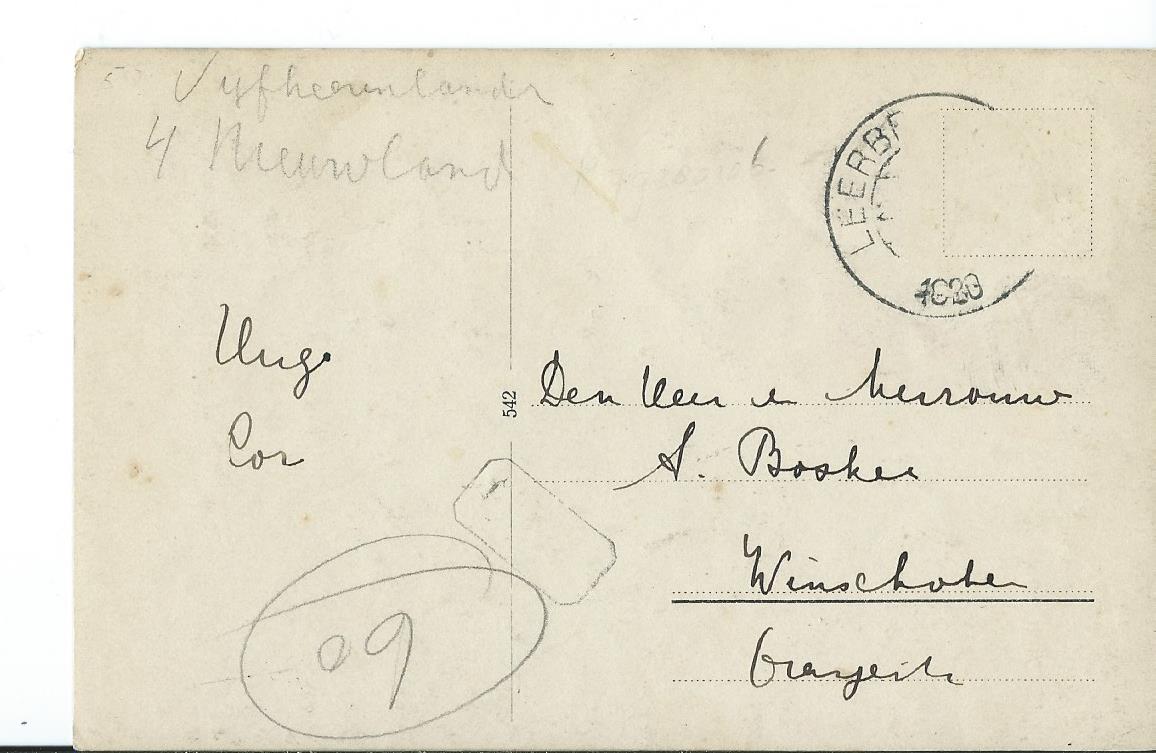 Vijfheerenlanden
4 Nieuwland
LEERB
1920
Hugo
Cor
542
Den Heer en Mevrouw
S. Bosker
Winschoten
Oranjestr
09